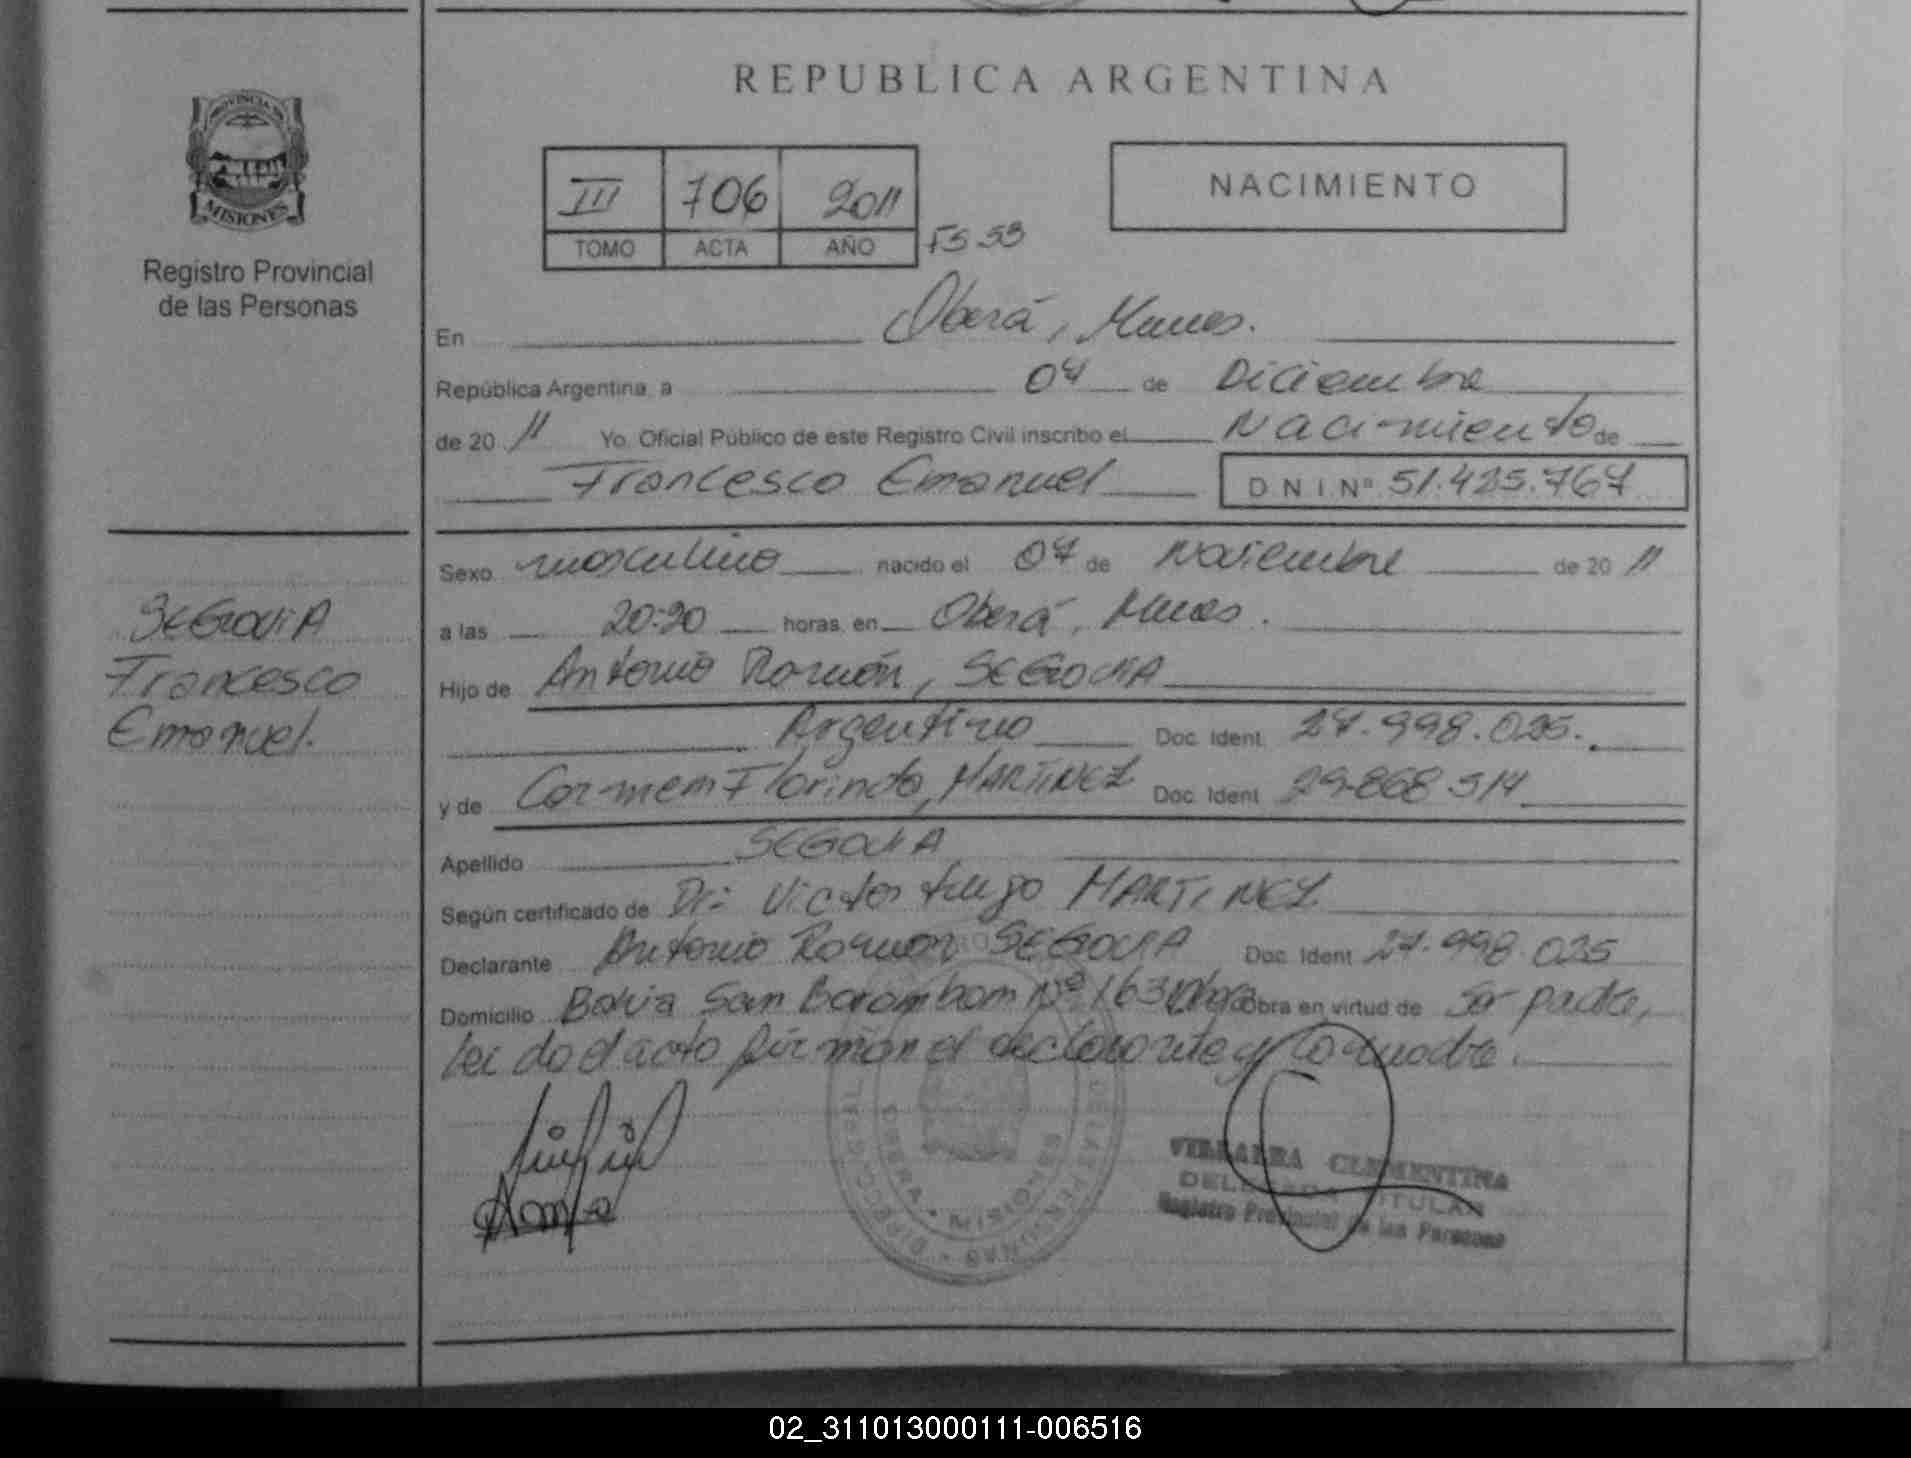 REPUBLICA ARGENTINA
PROVINCIA DE
MISIONES
Registro Provincial
de las Personas
III 706 2011
TOMO ACTA AÑO
FS 53
NACIMIENTO
En Oberá, Mnes.
República Argentina, a 07 de Diciembre
de 20 11 Yo, Oficial Público de este Registro Civil inscribo el Nacimiento de
Francesco Emanuel D N I Nº 51.425.767
Sexo masculino nacido el 07 de Noviembre de 20 11
a las 20:20 horas, en Oberá, Mnes.
Hijo de Antonio Ramón, SEGOVIA
Argentino Doc. Ident. 27.998.025.
y de Carmem Florinda, MARTINEZ Doc. Ident. 29.868.514
Apellido SEGOVIA
Según certificado de Dr: Victor Hugo MARTINEZ
Declarante Antonio Ramon SEGOVIA Doc. Ident. 27.998.025
Domicilio Bahia Sam Borombom Nº 163 obra en virtud de Ser padre,
Leido el acto firman el declarante y la madre.
SEGOVIA
Francesco
Emanuel.
OBERA - MISIONES
DE LAS PERSONAS
CLEMENTINA
DELEGADA TITULAR
Registro Provincial de las Personas
02_311013000111-006516